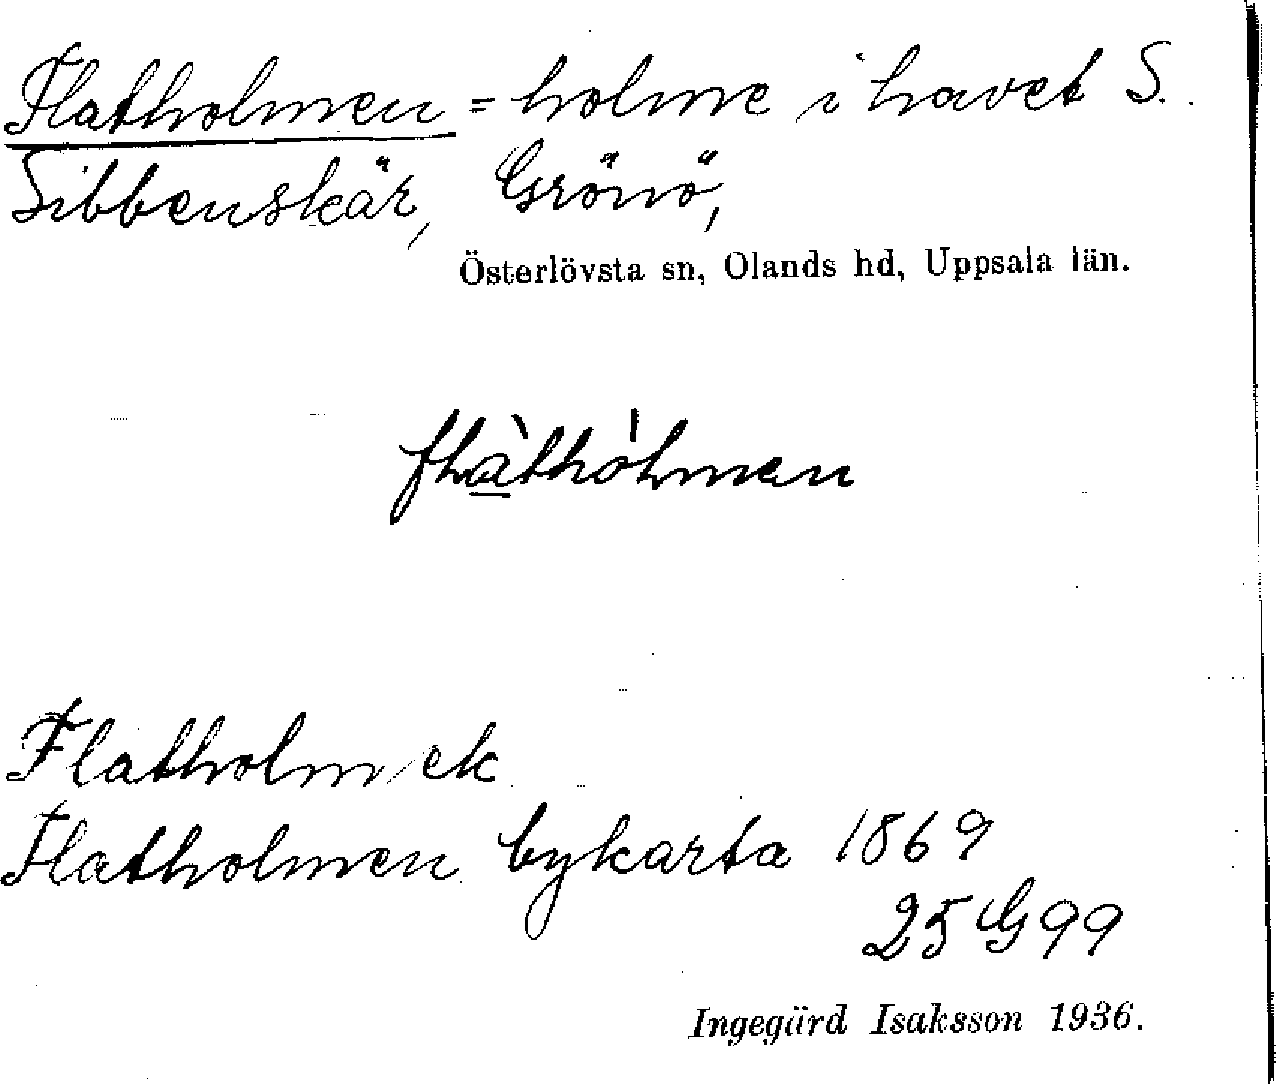 Flatholmen = holme i havet S.
Sibbenskär, Grönö,
Österlövsta sn, Olands hd, Uppsala län.
Flatholm ek
Flatholmen bykarta 1869
25 G 99
Ingegärd Isaksson 1936.